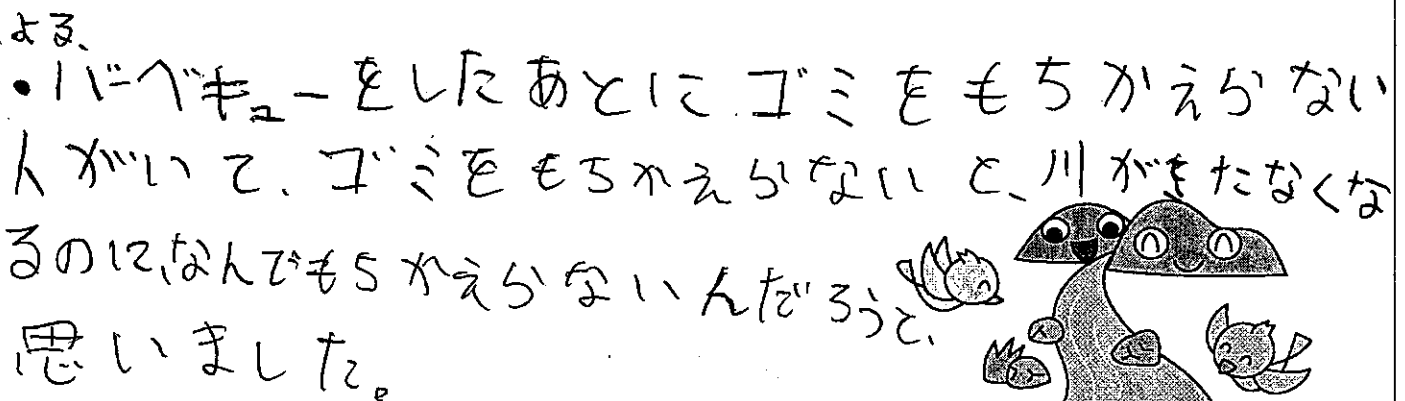 よる、
・バーベキューをしたあとにゴミをもちかえらない
人がいて、ゴミをもちかえらないと、川がきたなくな
るのに、なんでもちかえらないんだろうと、
思いました。